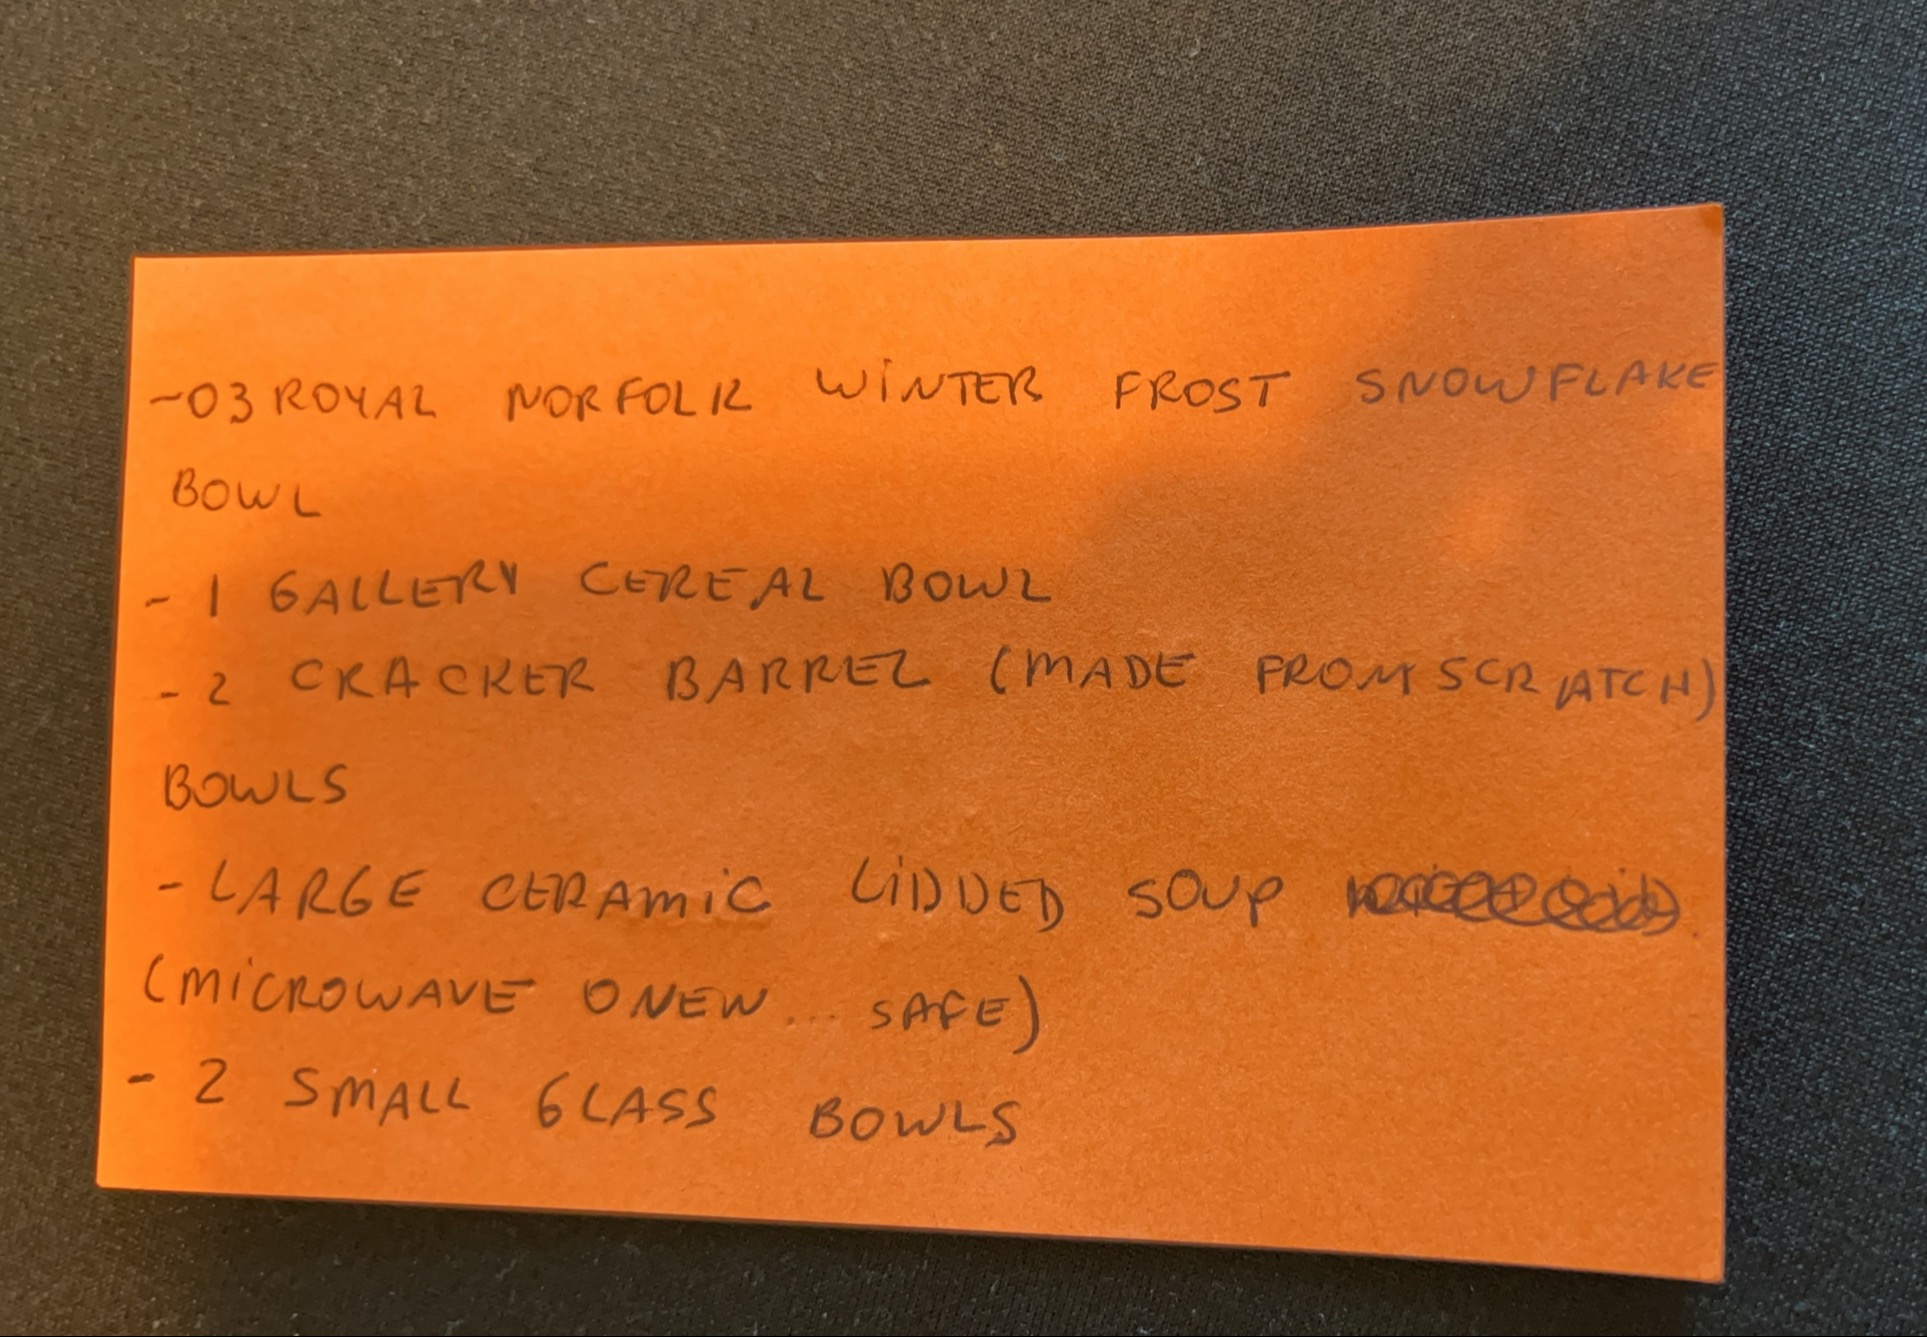 -03 ROYAL NORFOLK WINTER FROST SNOWFLAKE
BOWL
- 1 GALLERY CEREAL BOWL
- 2 CRACKER BARREL (MADE FROM SCRATCH)
BOWLS
- LARGE CERAMIC LIDDED SOUP
(MICROWAVE ONEW... SAFE)
- 2 SMALL GLASS BOWLS